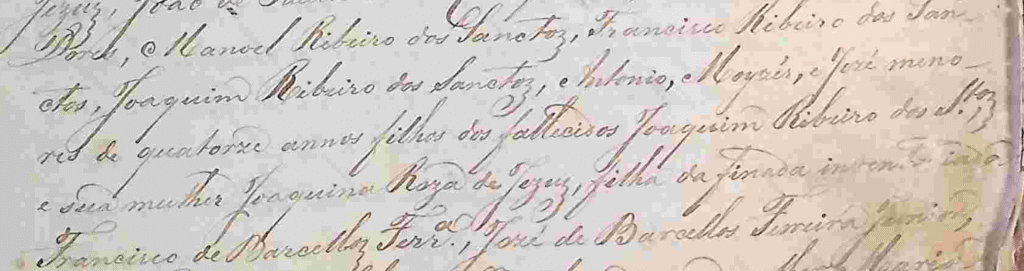 Jezuz, João de
Dores, Manoel Ribeiro dos Sanctoz, Francisco Ribeiro dos San-
ctos, Joaquim Ribeiro dos Sanctoz, Antonio, Moyzés, e José meno-
res de quatorze annos filhos dos fallecidos Joaquim Ribeiro dos S.toz,
e sua mulher Joaquina Roza de Jezuz, filha da finada inventariada
Francisco de Barcelloz Ferr.ª, José de Barcellos Ferreira Junior,